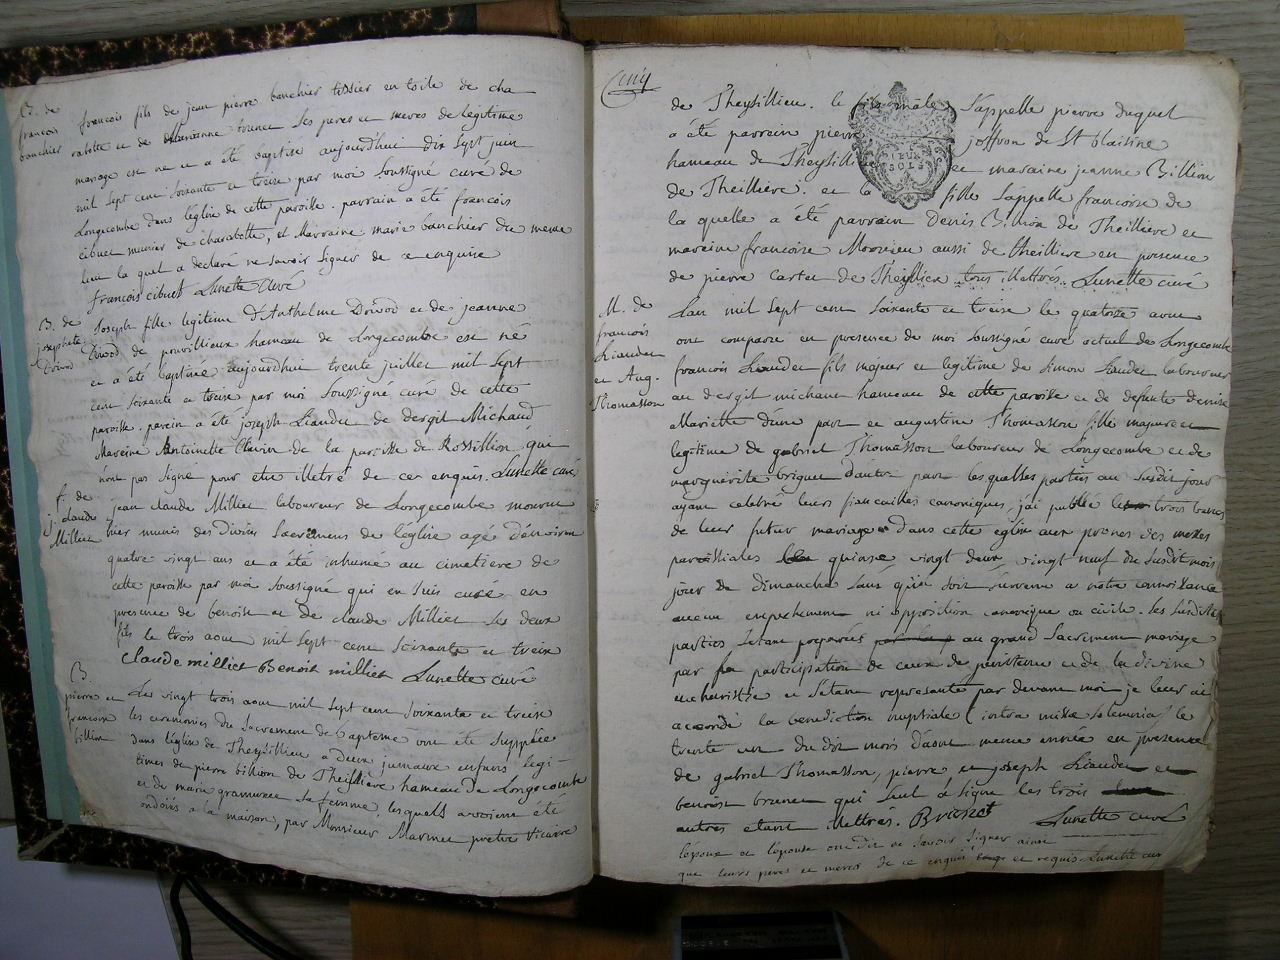 B. de
françois
banchier
françois fils de jean pierre banchier tissier en toile de cha
rabotte et de Marianne brunet ses peres et meres de legitime
mariage est ne et a été baptise aujourdhui dix sept juin
mil sept cent soixante et treize par moi soussigné curé de
Longecombe dans l'église de cette paroisse. parrain a été françois
cibuet munier de charabotte, et Marraine marie banchier du meme
lieu la quel a declaré ne savoir signer de ce enquise
françois cibuet Lunette Curé
B. de
josephete
Joseph fille legitime d'Anthelme et de jeanne
de pouvillieux hameau de Longecombe est né
et a été baptisée aujourdhui trente juillet mil sept
cent soixante et treize par moi soussigné curé de cette
paroisse. parein a été joseph Liaudet de dergit Michaud
Mareine Antoinette de la paroisse de Rossillion qui
n'ont pas signe pour etre illetré de ces enquis. Lunette curé
f. de
j. claude
Milliet
jean claude Milliet laboureur de Longecombe mourut
hier munis des Divins Sacremens de l'église agé d'environ
quatre vingt ans et a été inhumé au cimetiere de
cette paroisse par moi soussigné qui en suis curé en
presence de benoit et de claude Milliet ses deux
fils le trois aout mil sept cent soixante et treize
Claude milliet Benoit milliet Lunette curé
B.
pierre et
francoise
billion
Les vingt trois aout mil sept cent soixante et treize
les ceremonies du Sacrement de bapteme ont été supplée
dans l'église de Theysillieu a deux jumaux enfans legi-
times de pierre billion de Theillere hameau de Longecombe
et de marie sa femme, lesquels avoient été
ondoiés a la maison, par Monsieur Marinet pretre vicaire
de Theysillieu. le fils s'appelle pierre duquel
a été parrain pierre joffron de St blaisine
hameau de Theysillieu et maraine jeanne Billion
de Theilliere. et la fille s'appelle francoise de
la quelle a été parrain Denis Billion de Theilliere et
mareine francoise Moornieu aussi de theilliere en presence
de pierre cartet de Theysillieu tous illettrés. Lunette curé
DEUX
SOLS
M. de
françois
Liaudet
et Aug.
Thomasson
L'an mil sept cent soixante et treize le quatorze aout
ont comparu en presence de moi soussigné curé actuel de Longecombe
françois Liaudet fils majeur et legitime de simon Liaudet laboureur
au dergit michaut hameau de cette paroisse et de defunte denise
Mariette d'une part et augustine Thomasson fille majeure et
legitime de gabriel Thomasson laboureur de Longecombe et de
marguerite briguet d'autre part les quelles parties au susdit jour
ayant celebré leurs fiancailles canoniques, j'ai publié trois bannes
de leur futur mariage dans cette église aux prones des messes
paroissiales quinze vingt deux vingt neuf du susdit mois
jour de dimanche sans qu'il soit survenu a notre connoissance
aucun empechement ni opposition canonique ou civile. les susdites
parties s'etant preparées au grand sacrement mariage
par participation de ceux de penitence et de la divine
eucharistie et s'etant représentés par devant moi je leur ai
accordé la benediction nuptiale (contra missæ solemnia) le
trente un du dit mois d'aout meme année en presence
de gabriel Thomasson, pierre et joseph Liaudet et
benoist brunet qui seul a signe les trois
autres etant illettres. Lunette curé
l'epoux et l'epouse ont dit ne savoir signer ainsi
que leurs peres et meres de ce enquis et requis Lunette curé